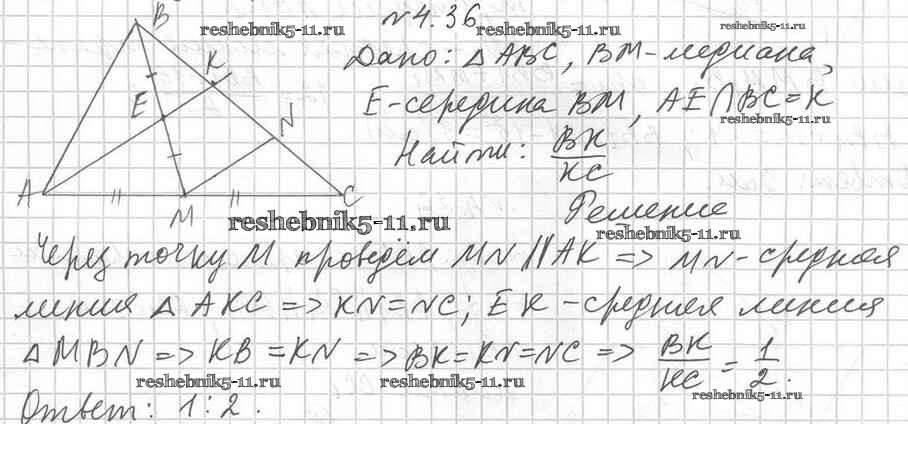 №4.36
reshebnik5-11.ru reshebnik5-11.ru reshebnik5-11.ru
B
Дано: △ABC, BM-медиана,
K
E-середина BM, AE∩BC=K
reshebnik5-11.ru
E
N
Найти: BK/KC
A
M
C
reshebnik5-11.ru
Решение
reshebnik5-11.ru
Через точку M проведём MN ∥ AK => MN-средняя
линия △ AKC => KN=NC; EK-средняя линия
△ MBN => KB=KN => BK=KN=NC => BK/KC = 1/2.
reshebnik5-11.ru reshebnik5-11.ru reshebnik5-11.ru
Ответ: 1:2.